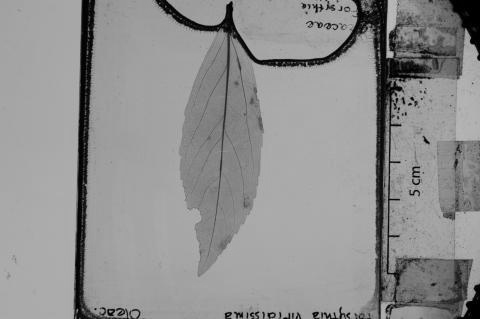 aceae
Forsythia
5 cm
Forsythia viridissima
Oleac.